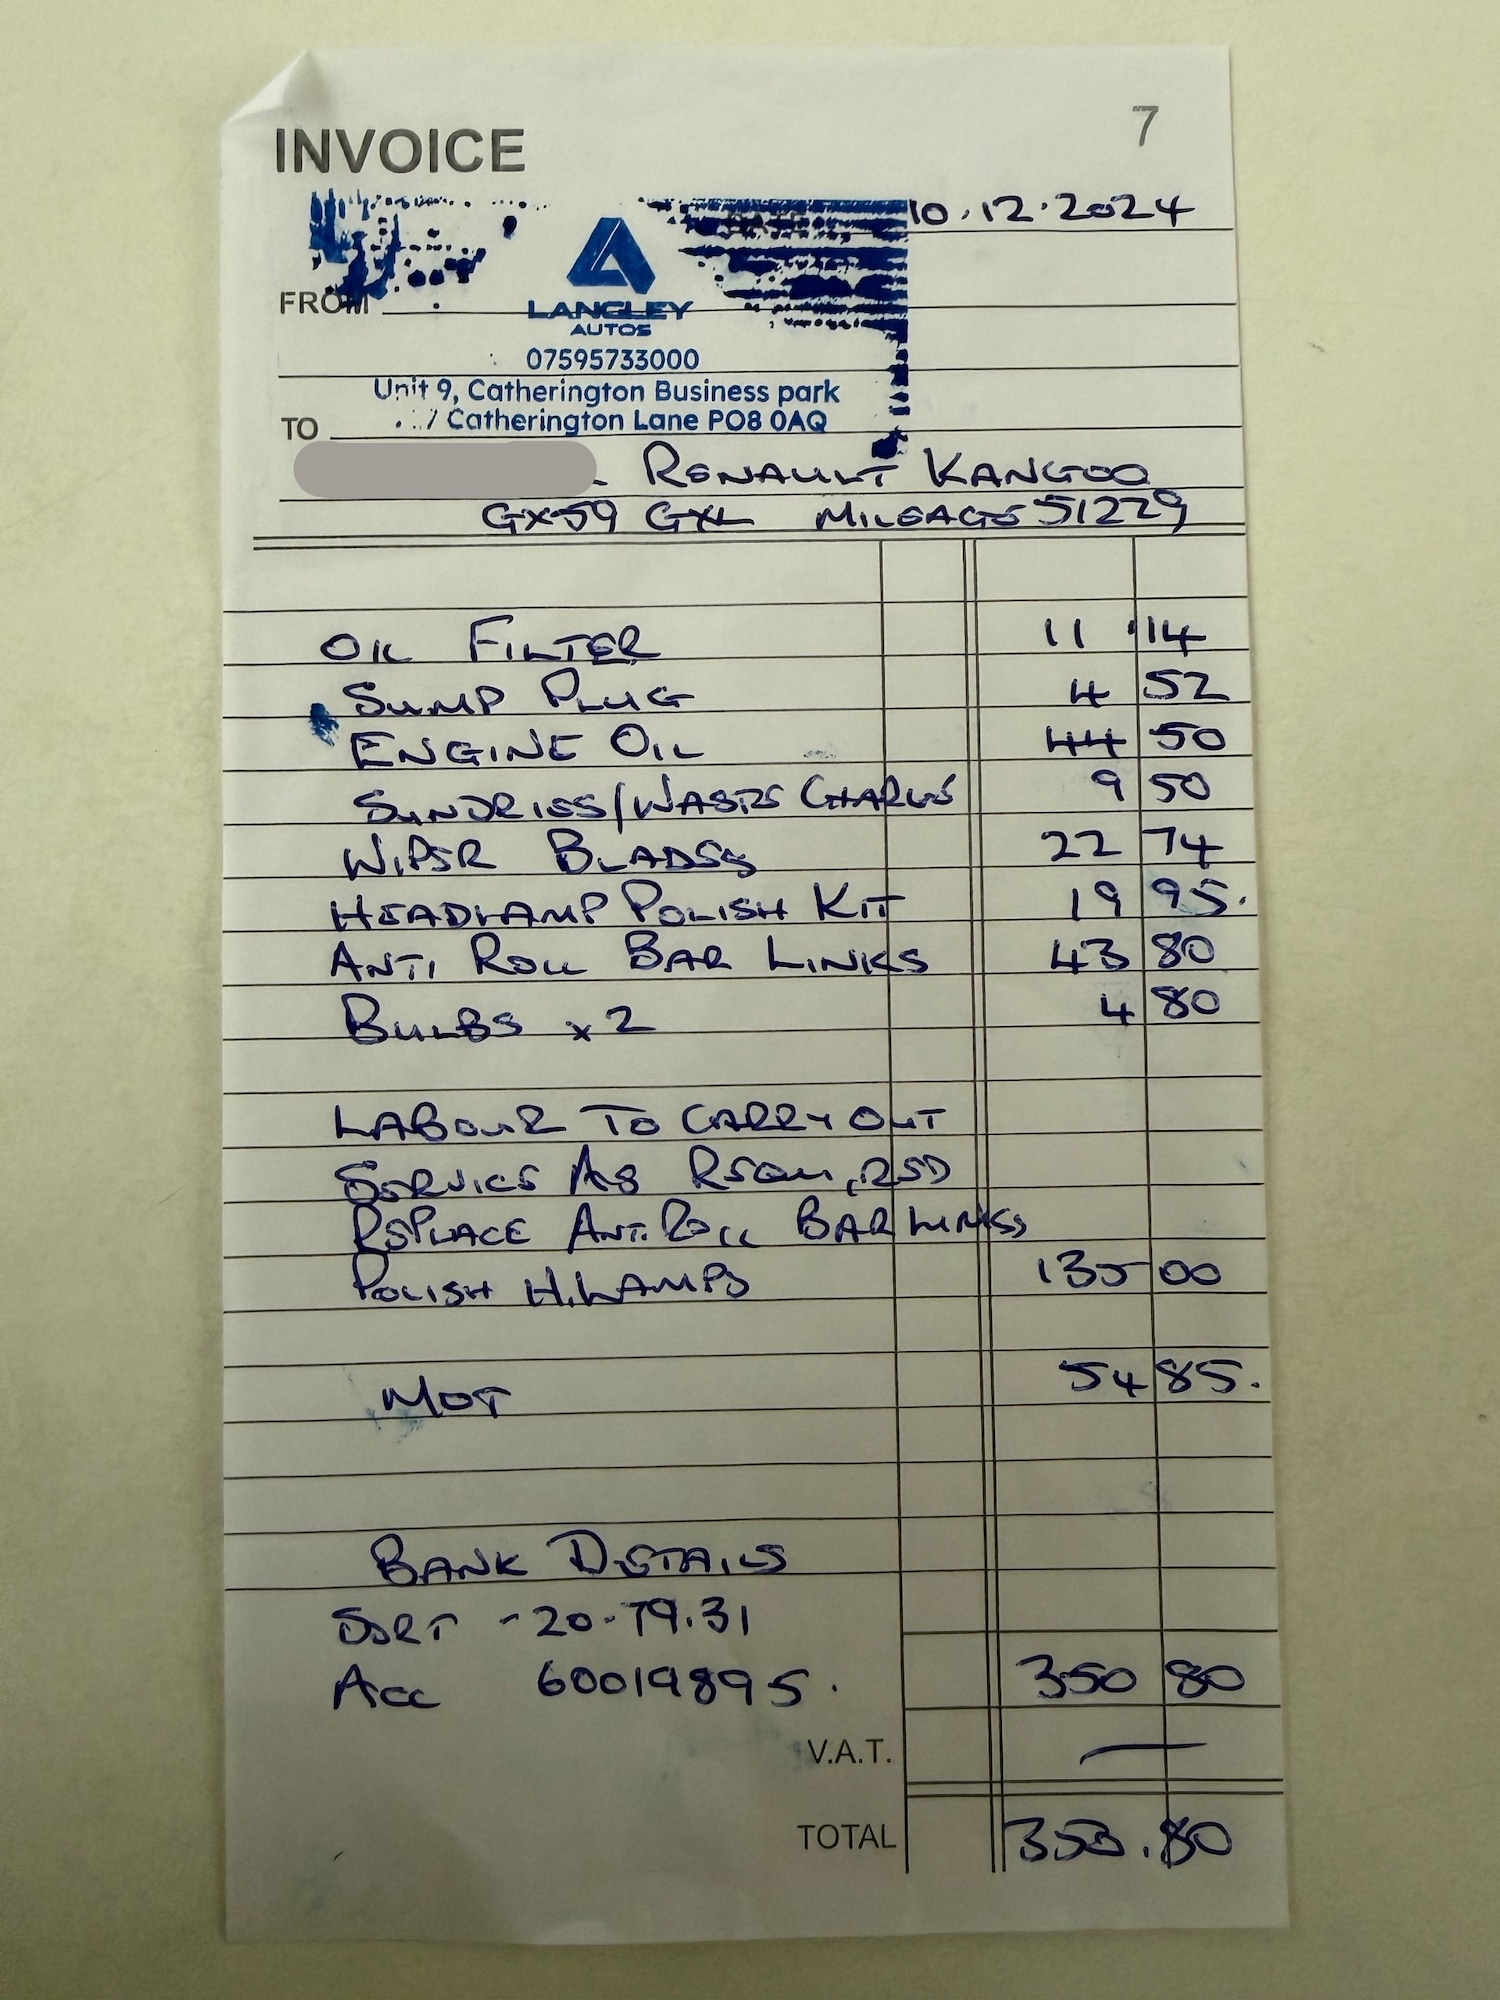 INVOICE 7
10.12.2024
FROM
LANGLEY
AUTOS
07595733000
Unit 9, Catherington Business park
7 Catherington Lane PO8 0AQ
TO
RENAULT KANGOO
GX59 GXL MILEAGE 51229
OIL FILTER 11.14
SUMP PLUG 4 52
ENGINE OIL 44 50
SUNDRIES/WASTE CHARGE 9 50
WIPER BLADES 22 74
HEADLAMP POLISH KIT 19 95.
ANTI ROLL BAR LINKS 43 80
BULBS x2 4 80
LABOUR TO CARRY OUT
SERVICE AS REQUIRED
REPLACE ANTI ROLL BAR LINKS
POLISH H.LAMPS 135 00
MOT 54 85.
BANK DETAILS
SORT - 20-79.31
ACC 60019895.
350 80
V.A.T. —
TOTAL 350.80